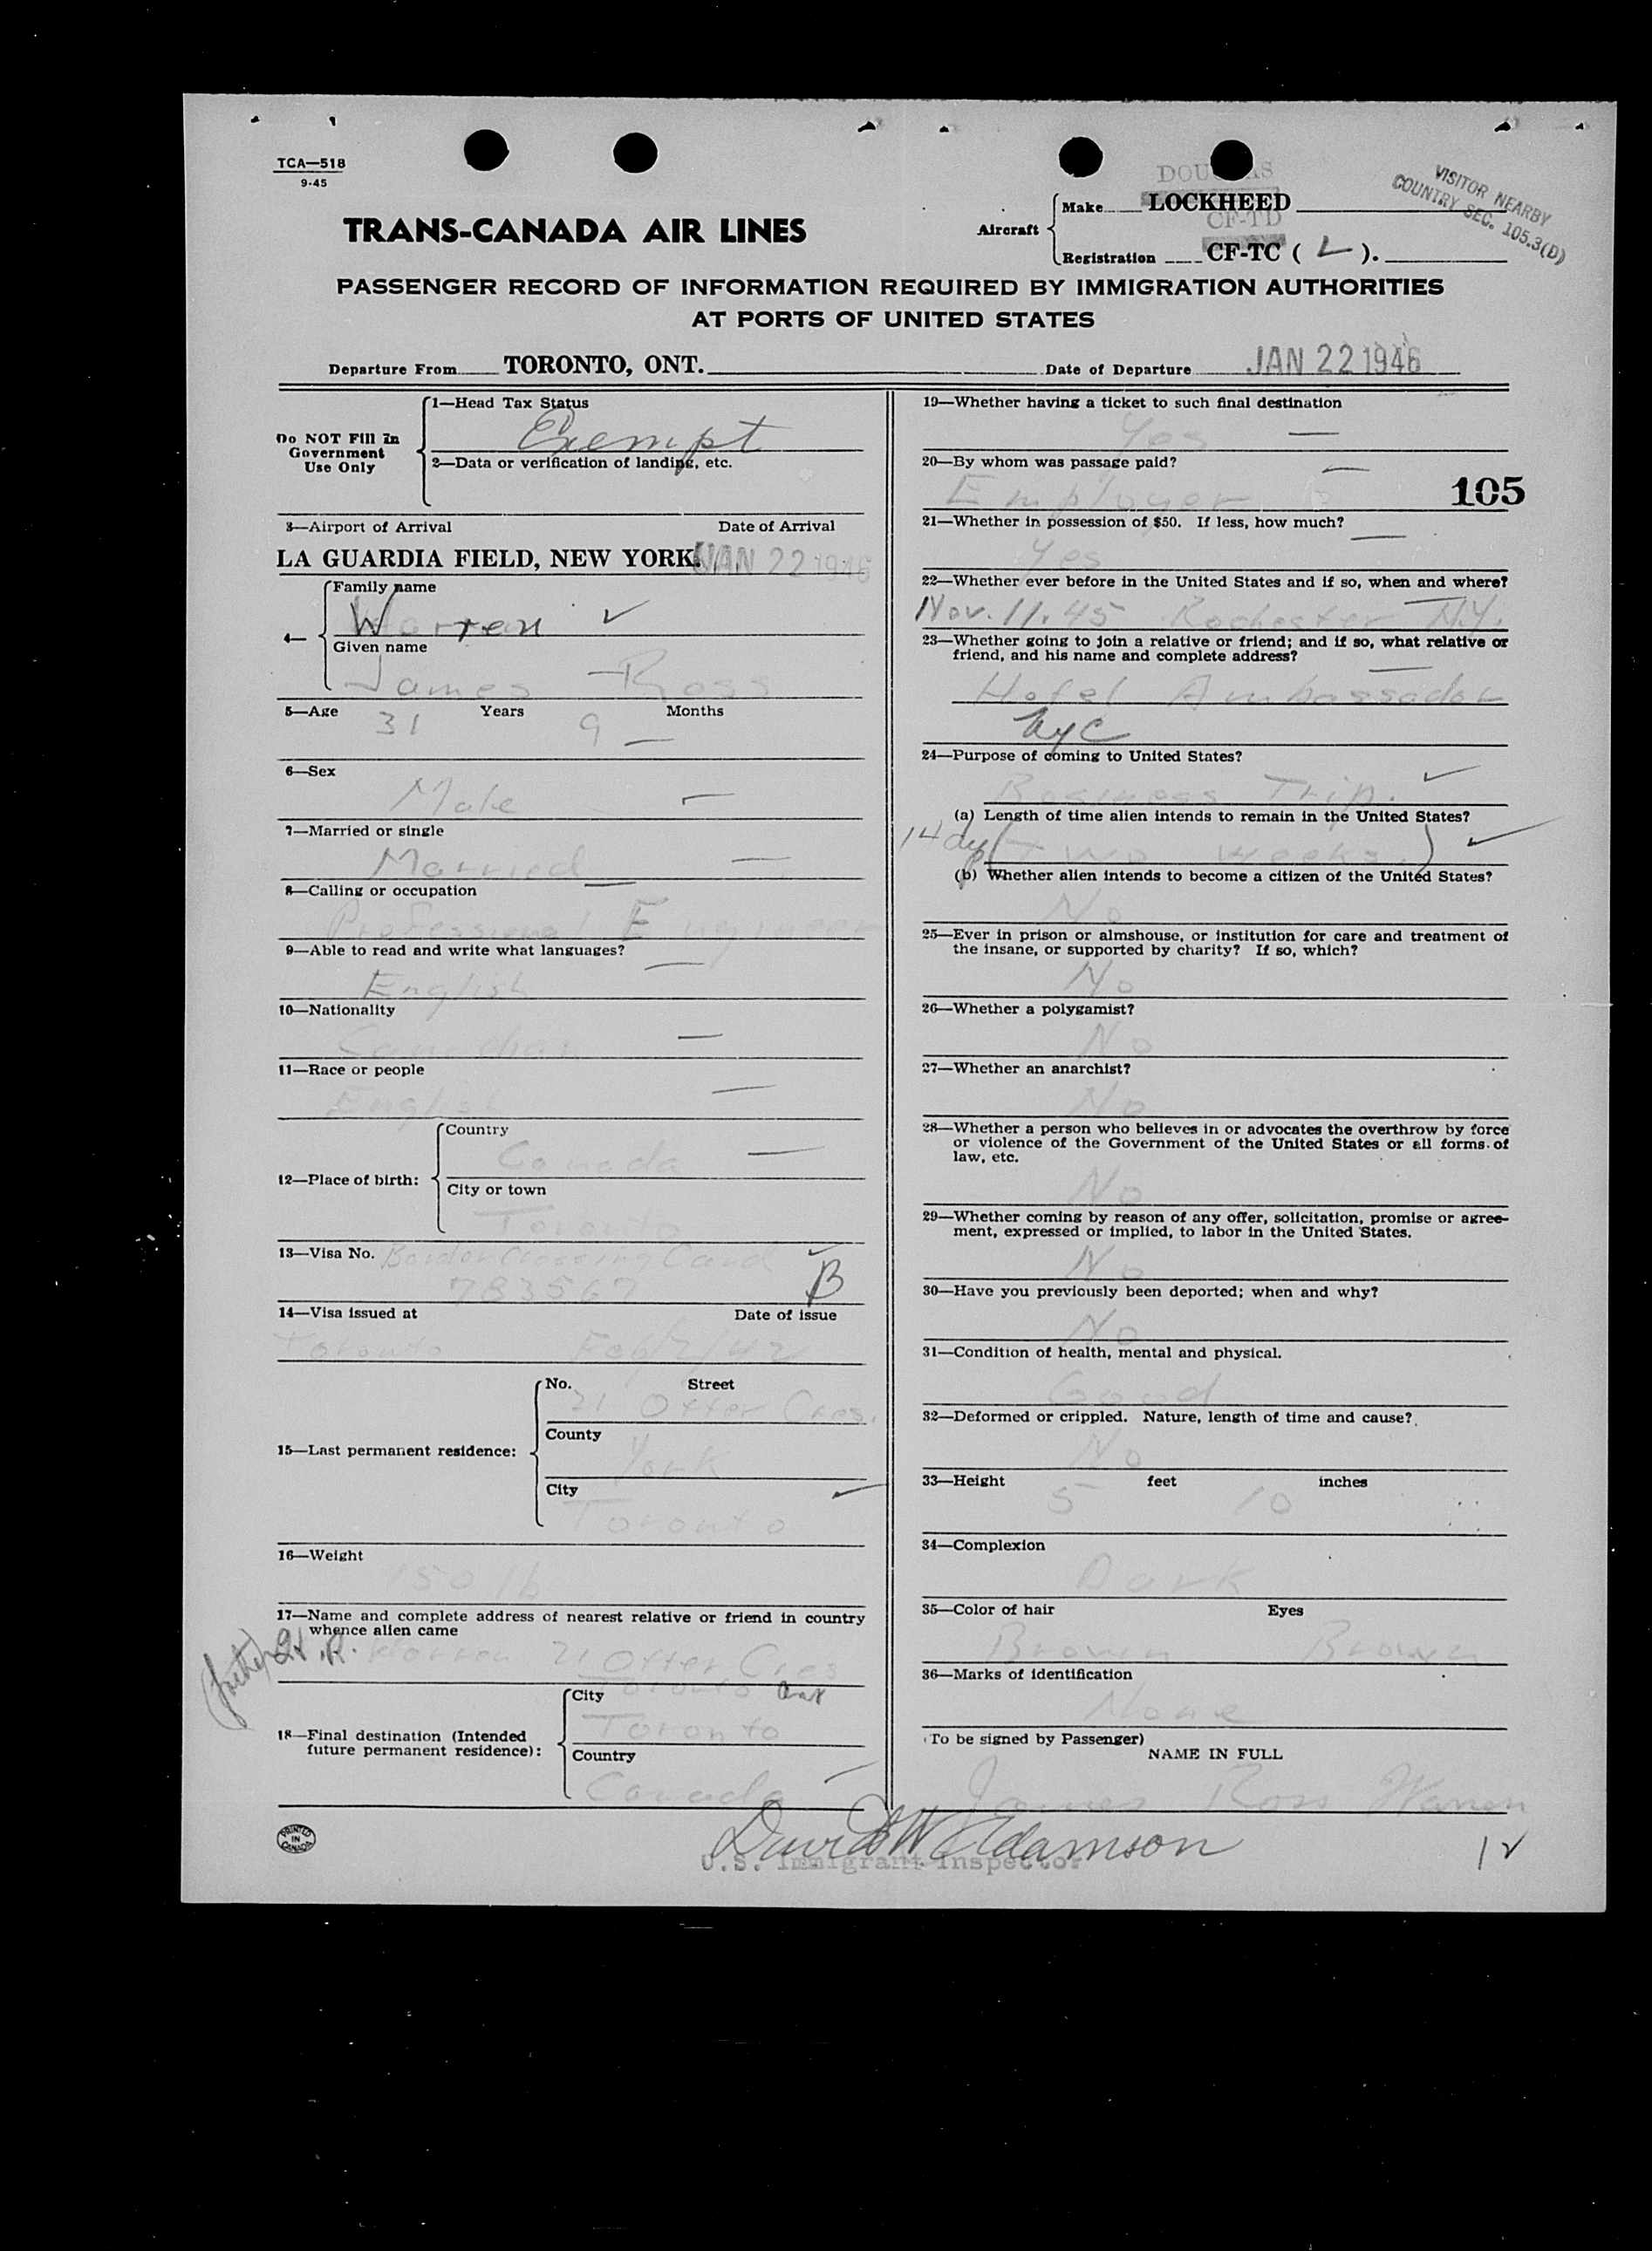 TCA—518
9-45
DOUGLAS
VISITOR NEARBY
COUNTRY SEC. 105.3(D)
TRANS-CANADA AIR LINES
Aircraft
Make LOCKHEED
CF-TD
Registration CF-TC ( L ).
PASSENGER RECORD OF INFORMATION REQUIRED BY IMMIGRATION AUTHORITIES
AT PORTS OF UNITED STATES
Departure From TORONTO, ONT. Date of Departure JAN 22 1946
Do NOT Fill in
Government
Use Only
1—Head Tax Status
Exempt
2—Data or verification of landing, etc.
3—Airport of Arrival Date of Arrival
LA GUARDIA FIELD, NEW YORK. JAN 22 1946
4—
Family name
Warren ✓
Given name
James Ross
5—Age 31 Years 9 Months
6—Sex
Male
7—Married or single
Married
8—Calling or occupation
Professional Engineer
9—Able to read and write what languages?
English
10—Nationality
Canadian
11—Race or people
English
12—Place of birth:
Country
Canada
City or town
Toronto
13—Visa No. Border Crossing Card
783567 B
14—Visa issued at Date of issue
Toronto Feb/2/42
15—Last permanent residence:
No. Street
21 Otter Cres.
County
York
City
Toronto
16—Weight
150 lb
17—Name and complete address of nearest relative or friend in country
whence alien came
(father) R. Warren 21 Otter Cres
Toronto Ont
18—Final destination (Intended
future permanent residence):
City
Toronto
Country
Canada
19—Whether having a ticket to such final destination
Yes
20—By whom was passage paid?
Employer
105
21—Whether in possession of $50. If less, how much?
Yes
22—Whether ever before in the United States and if so, when and where?
Nov. 11. 45 Rochester N.Y.
23—Whether going to join a relative or friend; and if so, what relative or
friend, and his name and complete address?
Hotel Ambassador
NYC
24—Purpose of coming to United States?
Business Trip. ✓
(a) Length of time alien intends to remain in the United States?
14 dys (Two weeks.) ✓
(b) Whether alien intends to become a citizen of the United States?
No
25—Ever in prison or almshouse, or institution for care and treatment of
the insane, or supported by charity? If so, which?
No
26—Whether a polygamist?
No
27—Whether an anarchist?
No
28—Whether a person who believes in or advocates the overthrow by force
or violence of the Government of the United States or all forms of
law, etc.
No
29—Whether coming by reason of any offer, solicitation, promise or agree-
ment, expressed or implied, to labor in the United States.
No
30—Have you previously been deported; when and why?
No
31—Condition of health, mental and physical.
Good
32—Deformed or crippled. Nature, length of time and cause?
No
33—Height 5 feet 10 inches
34—Complexion
Dark
35—Color of hair Eyes
Brown Brown
36—Marks of identification
None
(To be signed by Passenger)
NAME IN FULL
James Ross Warren
PRINTED IN CANADA
David W Adamson
U.S. Immigrant Inspector